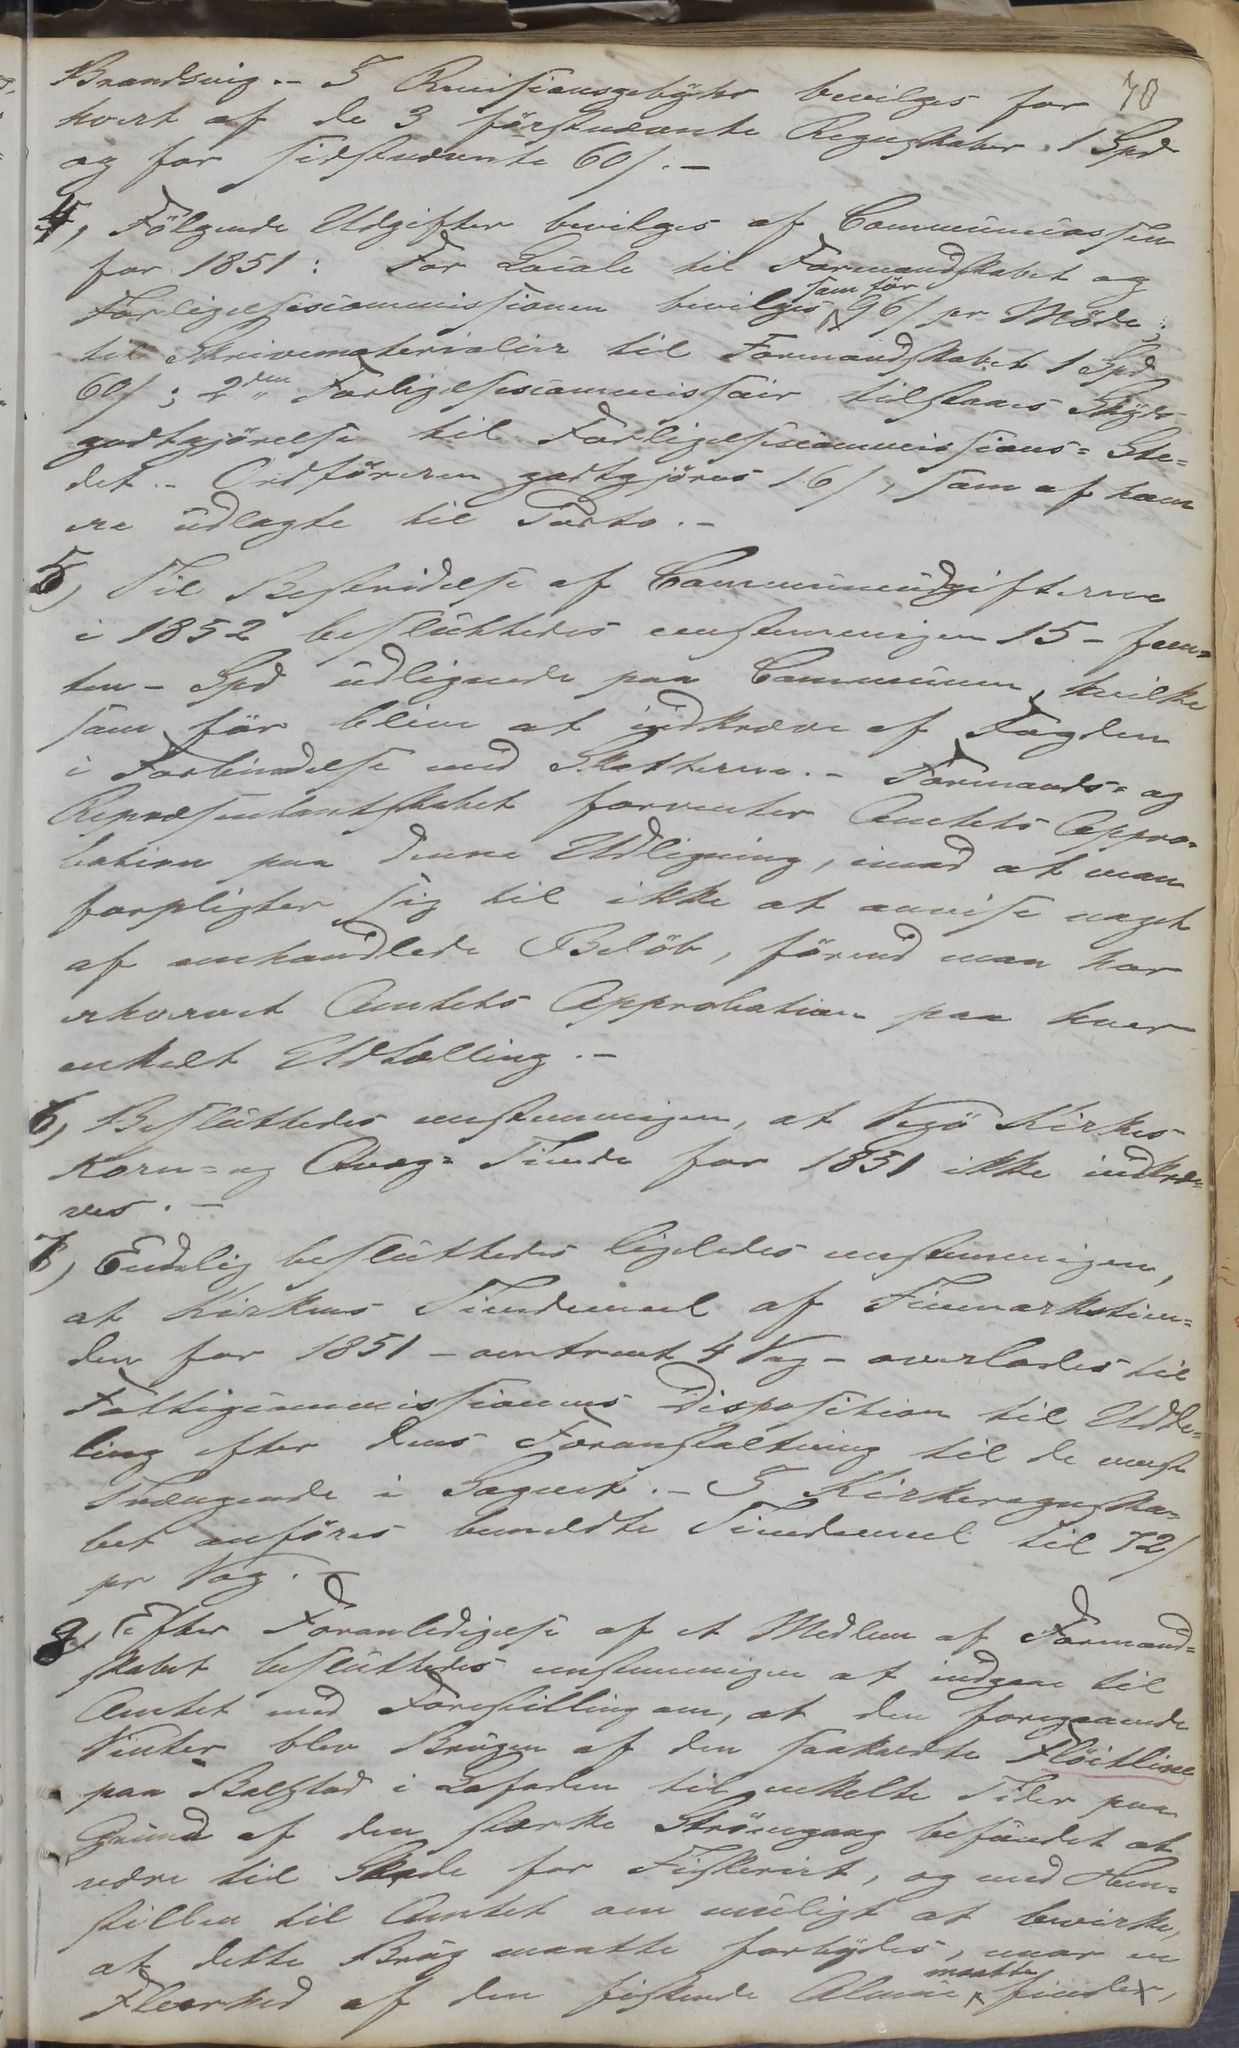 70
Brandsvig. – I Revisionsgebyhr bevilges for
hvert af de 3 förstnævnte Regnskaber 1 Spd
og for sidstnævnte 60 s. –
4, Fölgende Udgifter bevilges af Communecassen
for 1851: For Locale til Formandskabet og
Forligelsescommissionen bevilges som för 96 s pr Möde;
til Skrivematerialier til Formandskabet 1 Spd
60 s; 2den Forligelsescommissair tilstaaes Skyds-
godtgjörelse til Forligelsescommissions-Ste-
det. – Ordföreren godtgjöres 16 s, som af ham
ere udlagte til Porto. –
5, Til Bestridelse af Communeudgifterne
i 1852 besluttedes eenstemmigen 15 – fem-
ten – Spd udlignede paa Communen, hvilke
som för blive at indkræve af Fogden
i Forbindelse med Skatterne. – Formands- og
Repræsentantskabet forventer Amtets Appro-
bation paa denne Udligning, imod at man
forpligter sig til ikke at anvise noget
af omhandlede Belöb, förend man har
erhvervet Amtets Approbation paa hver
enkelt Udtælling. –
6, Besluttedes eenstemmigen, at Vegö Kirkes
Korn- og Qvæg-Tiende for 1851 ikke indkræ-
ves. –
7, Endelig besluttedes ligeledes eenstemmigen,
at Kirkens Tiendemeel af Finmarkstien-
den for 1851 – omtrent 4 Vog – overlades til
Fattigcommissionens Disposition til Udde-
ling efter dens Foranstaltning til de mest
Trængende i Sognet. – I Kirkeregnska-
bet anföres bemeldte Tiendemeel til 72 s
pr Vog. –
8, Efter Foranledigelse af et Medlem af Formand-
skabet besluttedes eenstemmigen at indgaae til
Amtet med Forestilling om, at den foregaaende
Vinter blev Brugen af den saakaldte Flöitline
paa Balstad i Lofoden til enkelte Tider paa
Grund af den stærke Strömgang befundet at
være til Skade for Fiskeriet, og med Hen-
stillen til Amtet om muligt at bevirke,
at dette Brug maatte forbydes, naar en
Fleerhed af den fiskende Almue maatte finde,